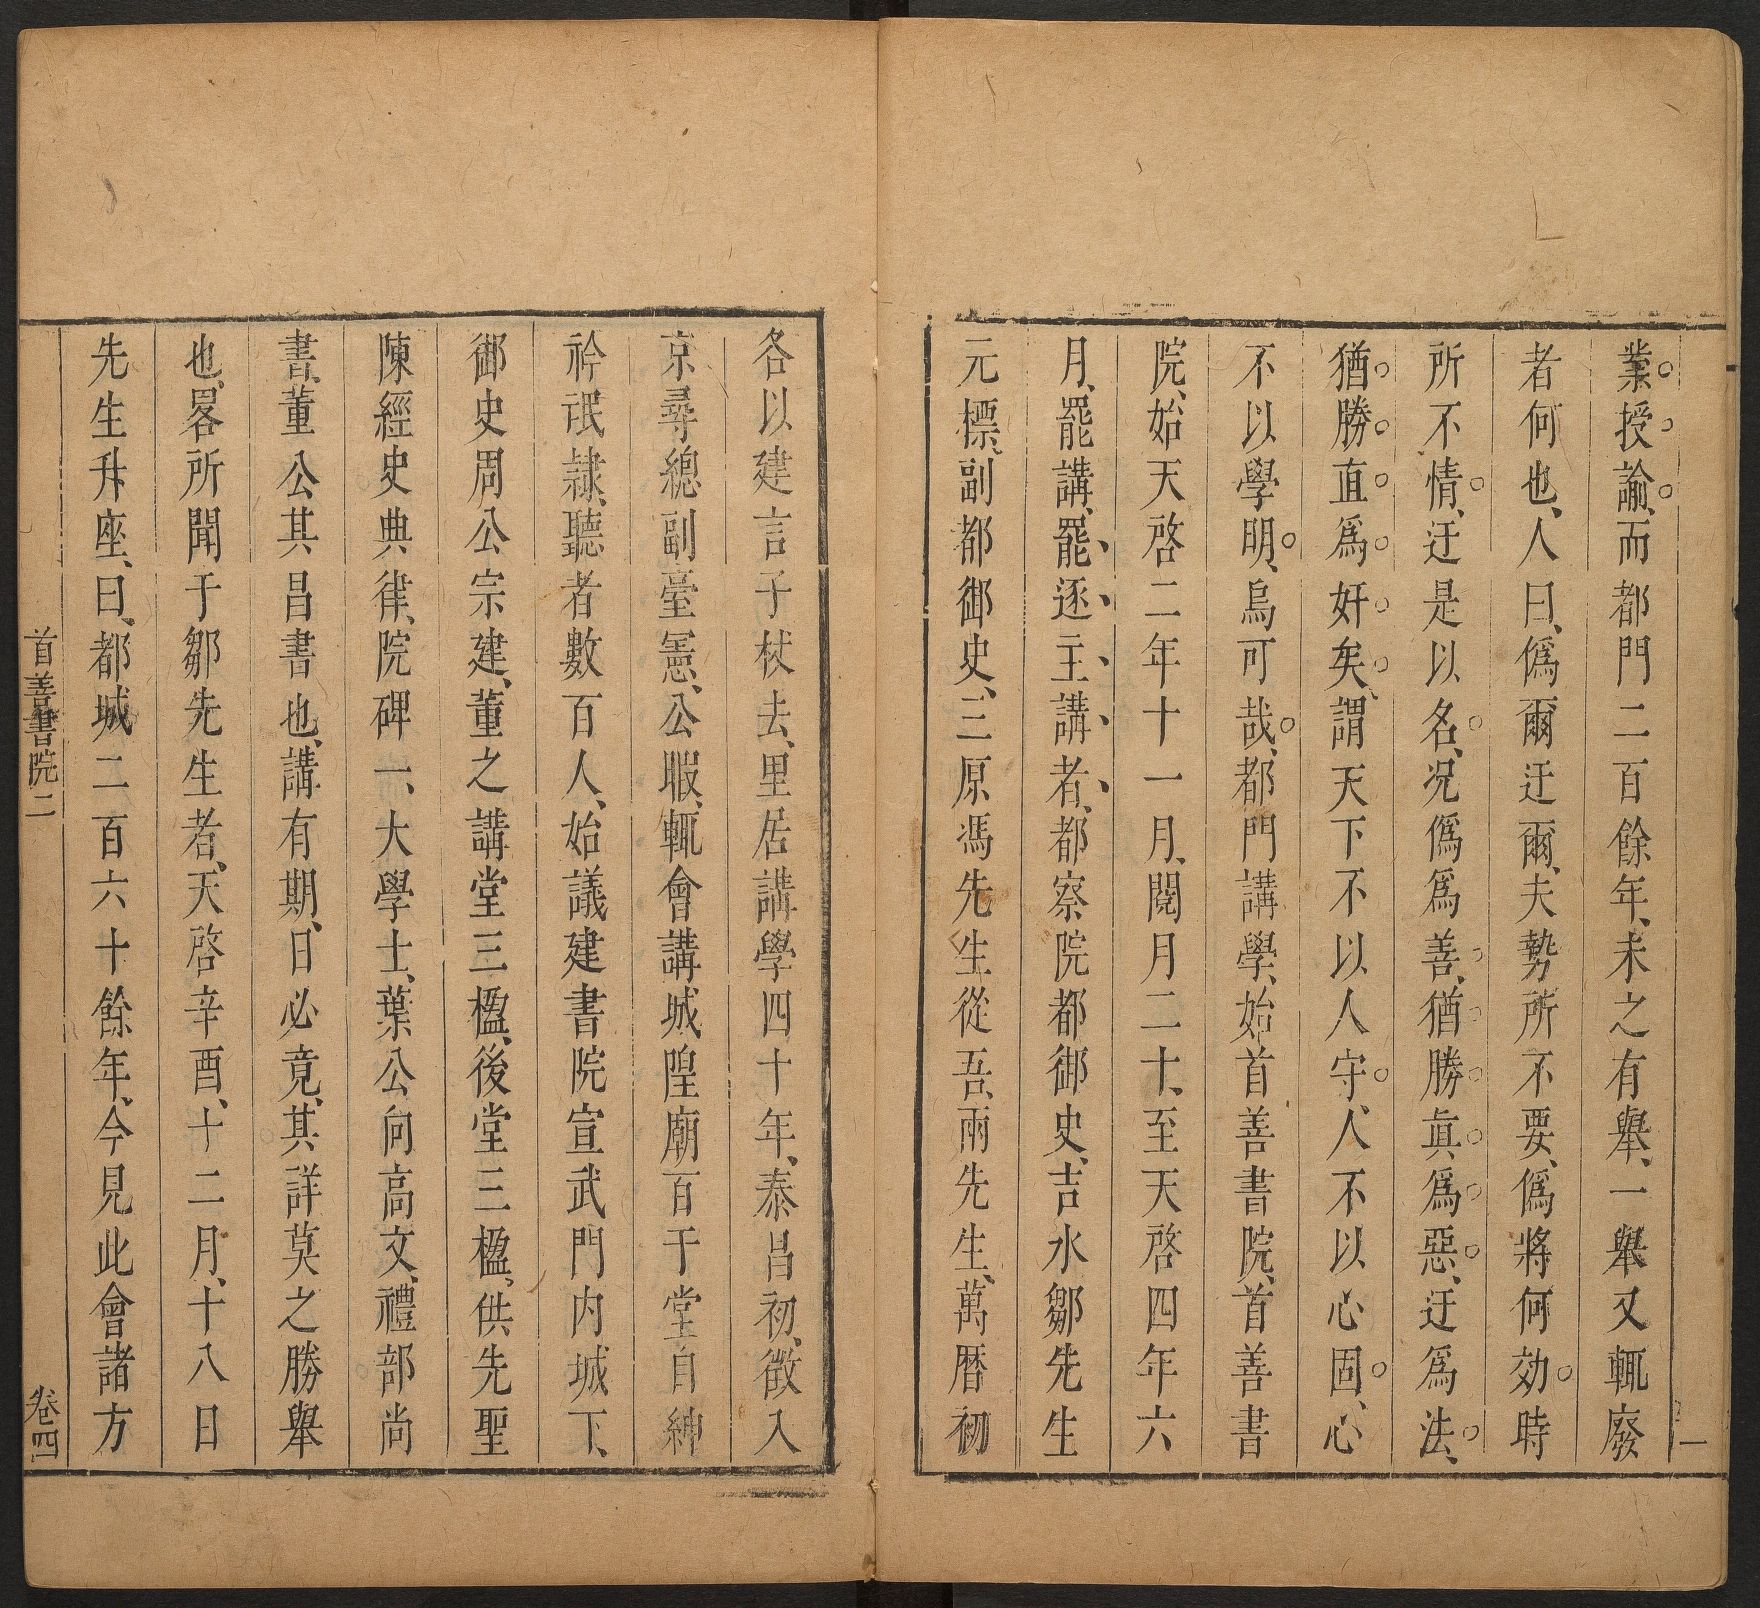 一
業授諭、而都門二百餘年、未之有舉、一舉又輒廢
者何也、人曰、僞爾迂爾、夫勢所不要、僞將何効時
所不情、迂是以名、况僞爲善、猶勝眞爲惡、迂爲法、
猶勝直爲奸矣、謂天下不以人守、人不以心固、心
不以學明、烏可哉、都門講學、始首善書院、首善書
院、始天啓二年十一月、閱月二十、至天啓四年六
月、罷講、罷逐主講者、都察院都御史、吉水鄒先生
元標、副都御史、三原馮先生從吾、兩先生、萬曆初
各以建言予杖去、里居講學四十年、泰昌初、徵入
京尋總副臺憲、公暇、輒會講、城隍廟百子堂自紳
衿氓隷、聽者數百人、始議建書院宣武門内城下、
御史周公宗建、董之講堂三楹、後堂三楹、供先聖
陳經史典律、院碑一、大學士、葉公向高文、禮部尚
書、董公其昌書也、講有期、日必竟、其詳莫之勝舉
也、畧所聞于鄒先生者、天啓辛酉、十二月、十八日
先生升座、曰、都城二百六十餘年、今見此會諸方
首善書院二
卷四